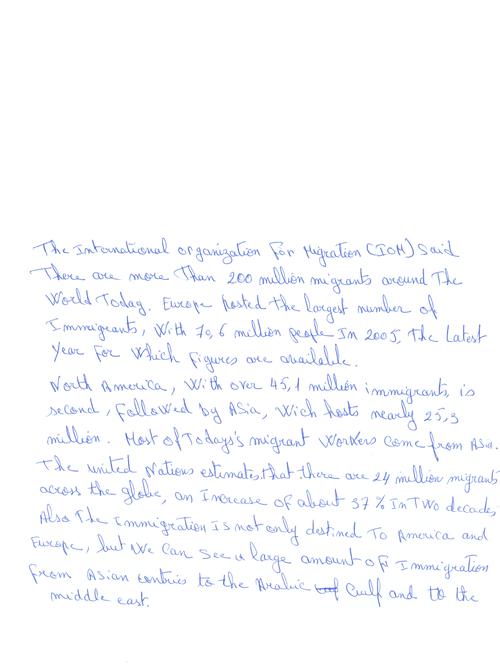 The International organization For Migration (IOM) Said
There are more Than 200 million migrants around The
World Today. Europe hosted The largest number of
Immigrants, With 70,6 million people In 2005, The Latest
Year For Which figures are available.
North America, With over 45,1 million immigrants, is
second, Followed by ASia, Wich hosts nearly 25,3
million. Most of Todays's migrant Workers come from ASia.
The united Nations estimates that there are 24 million migrants
across the globe, an Increase of about 37 % In Two decades,
Also The Immigration Is not only destined To America and
Europe, but We Can See a large amount of Immigration
from Asian contries to the Arabic Gulf and to the
middle east.